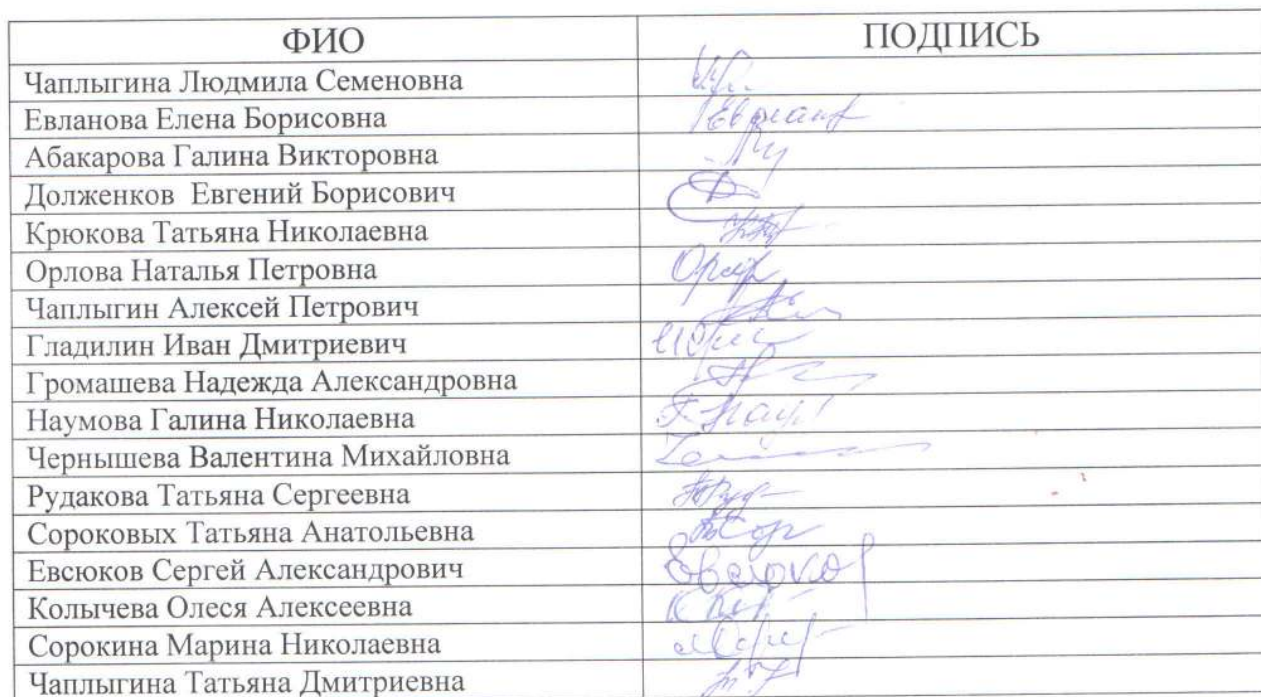 ФИО ПОДПИСЬ
Чаплыгина Людмила Семеновна
Евланова Елена Борисовна
Абакарова Галина Викторовна
Долженков Евгений Борисович
Крюкова Татьяна Николаевна
Орлова Наталья Петровна
Чаплыгин Алексей Петрович
Гладилин Иван Дмитриевич
Громашева Надежда Александровна
Наумова Галина Николаевна
Чернышева Валентина Михайловна
Рудакова Татьяна Сергеевна
Сороковых Татьяна Анатольевна
Евсюков Сергей Александрович
Колычева Олеся Алексеевна
Сорокина Марина Николаевна
Чаплыгина Татьяна Дмитриевна